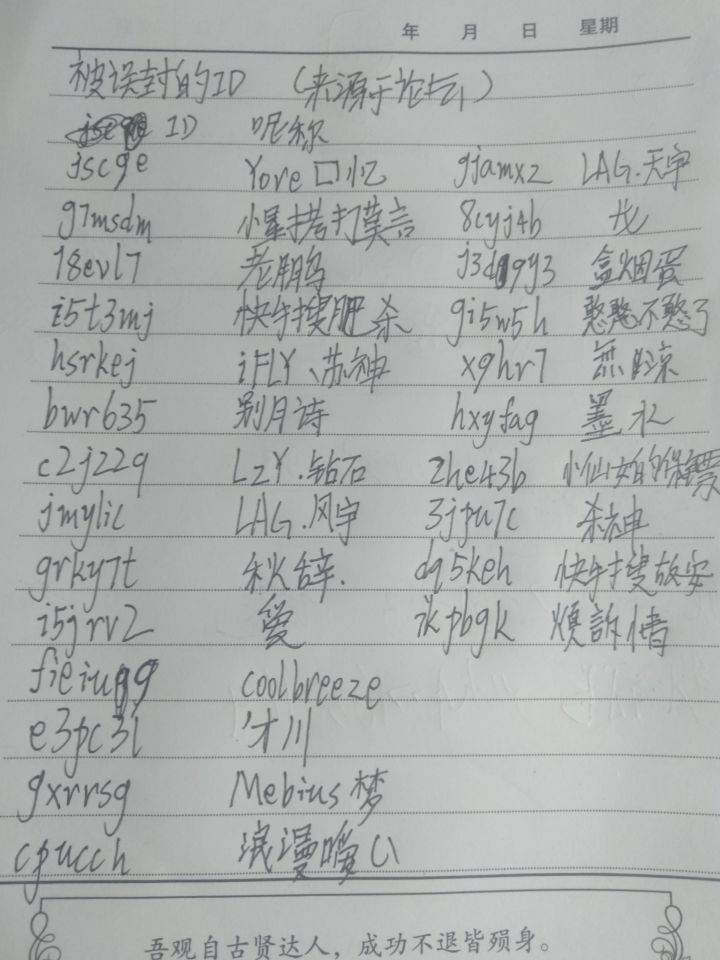 年 月 日 星期
被误封的ID （来源于论坛）
ID 呢称
jscge Yore口忆 gjamxz LAG.天宇
g7msdm 小星拷打莫言 8cyj4b 戈
18evl7 老鹏鸟 j3d9y3 盒烟蛋
i5t3mj 快手搜肥杀 gi5w5h 憨憨不憨了
hsrkej iFLY、苏神 x9hr7 無
bwr635 别月诗 hxyfag 墨水
c2j22q LzY.钻石 zhe43b 小仙女的保镖
jmylic LAG.风宇 3jpu7c 杀神
grky7t 秋辞. dq5keh 快手搜故安
i5jrv2 爱 ikpbgk 煩訴情
coolbreeze
e3pc3l 才川
gxrrsg Mebius梦
cpucch 浪漫嗳
吾观自古贤达人，成功不退皆殒身。